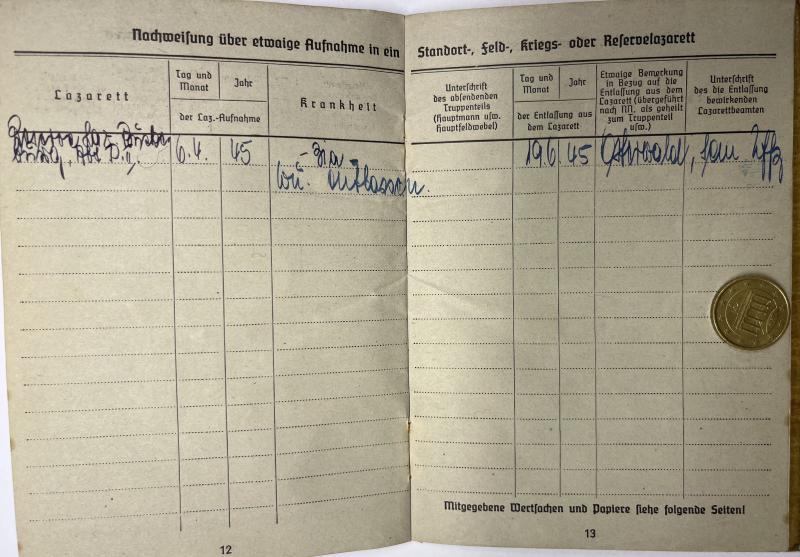 Nachweisung über etwaige Aufnahme in ein
Standort-, Feld-, Kriegs- oder Reservelazarett
Lazarett
Tag und
Monat
Jahr
der Laz.-Aufnahme
Krankheit
Unterschrift
des absendenden
Truppenteils
(Hauptmann usw.
Hauptfeldwebel)
Tag und
Monat
Jahr
der Entlassung aus
dem Lazarett
Etwaige Bemerkung
in Bezug auf die
Entlassung aus dem
Lazarett (übergeführt
nach NN. als geheilt
zum Truppenteil
usw.)
Unterschrift
des die Entlassung
bewirkenden
Lazarettbeamten
6.4. 45
19.6. 45
entlassen.
Mitgegebene Wertsachen und Papiere siehe folgende Seiten!
12
13